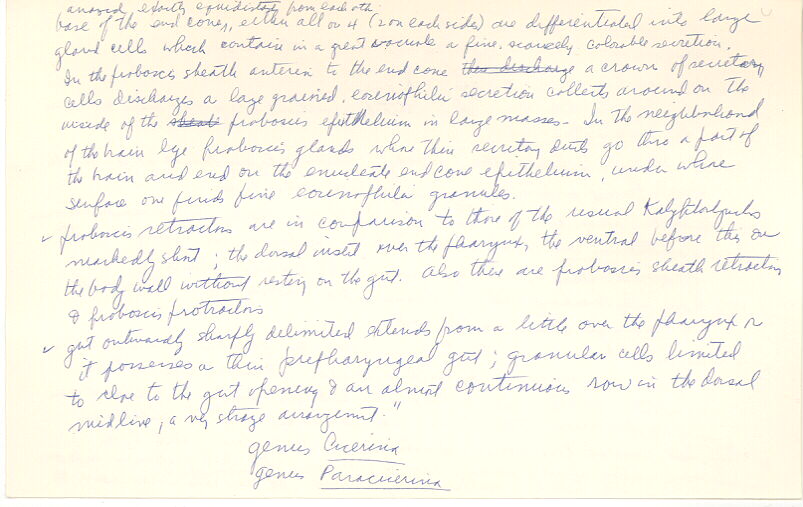 arranged exactly equidistantly from each oth.
base of the end cones, either all or 4 (2 on each side) are differentiated into large
gland cells which contain in a great vacuole a fine, scarcely colorable secretion.
In the proboscis sheath anterior to the end cone this discharge a crown of secretory
cells discharges a large grained, eosinophilic secretion collects around on the
inside of the sheath proboscis epithelium in large masses - In the neighborhood
of the brain lye proboscis glands whose thin secretory ducts go thru a part of
the brain and end on the enucleate end cone epithelium, under whose
surface one finds fine eosinophilic granules.
✓ proboscis retractors are in comparison to those of the usual Kalyptorhynchs
markedly short; the dorsal insert over the pharynx, the ventral before this on
the body wall without resting on the gut. Also there are proboscis sheath retractors
& proboscis protractors
✓ gut outwardly sharply delimited extends from a little over the pharynx or
it possesses a thin prepharyngeal gut; granular cells limited
to close to the gut opening & an almost continuous row in the dorsal
midline, a very strange arrangement."
genus Cicerina
genus Paracicerina